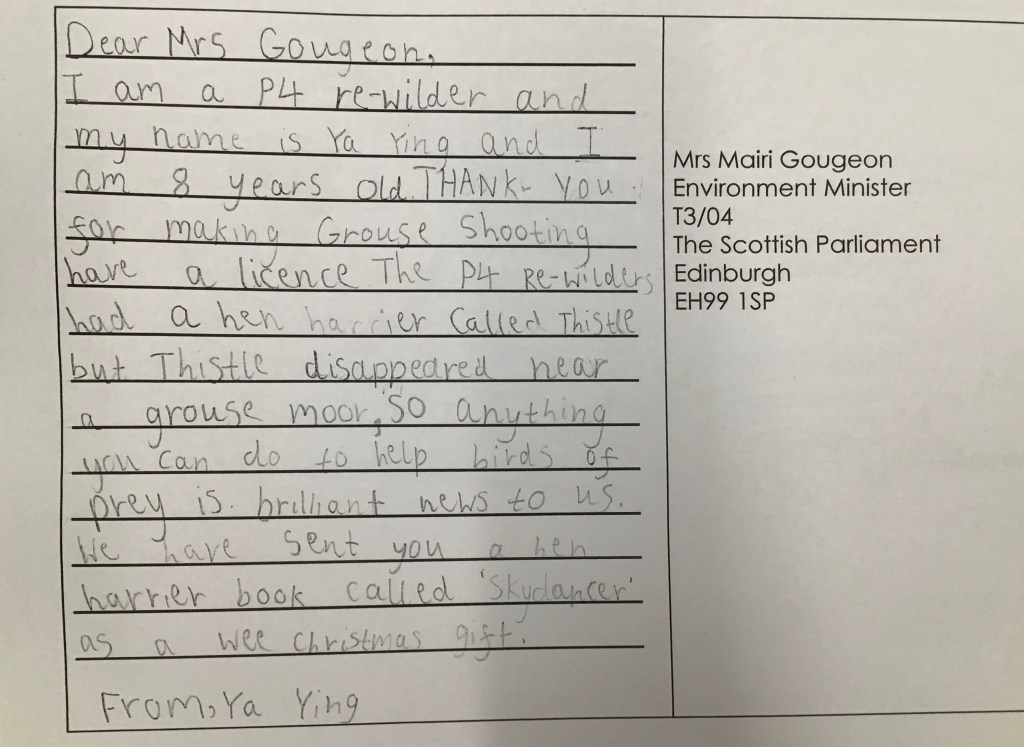 Dear Mrs Gougeon,
I am a P4 re-wilder and
my name is Ya Ying and I
am 8 years old. THANK-YOU
for making Grouse Shooting
have a licence The P4 RE-Wilders
had a hen harrier Called Thistle
but Thistle disappeared near
a grouse moor, SO anything
you can do to help birds of
prey is. brilliant news to us.
We have Sent you a hen
harrier book called 'Skydancer'
as a wee christmas gift.
From, Ya Ying
Mrs Mairi Gougeon
Environment Minister
T3/04
The Scottish Parliament
Edinburgh
EH99 1SP